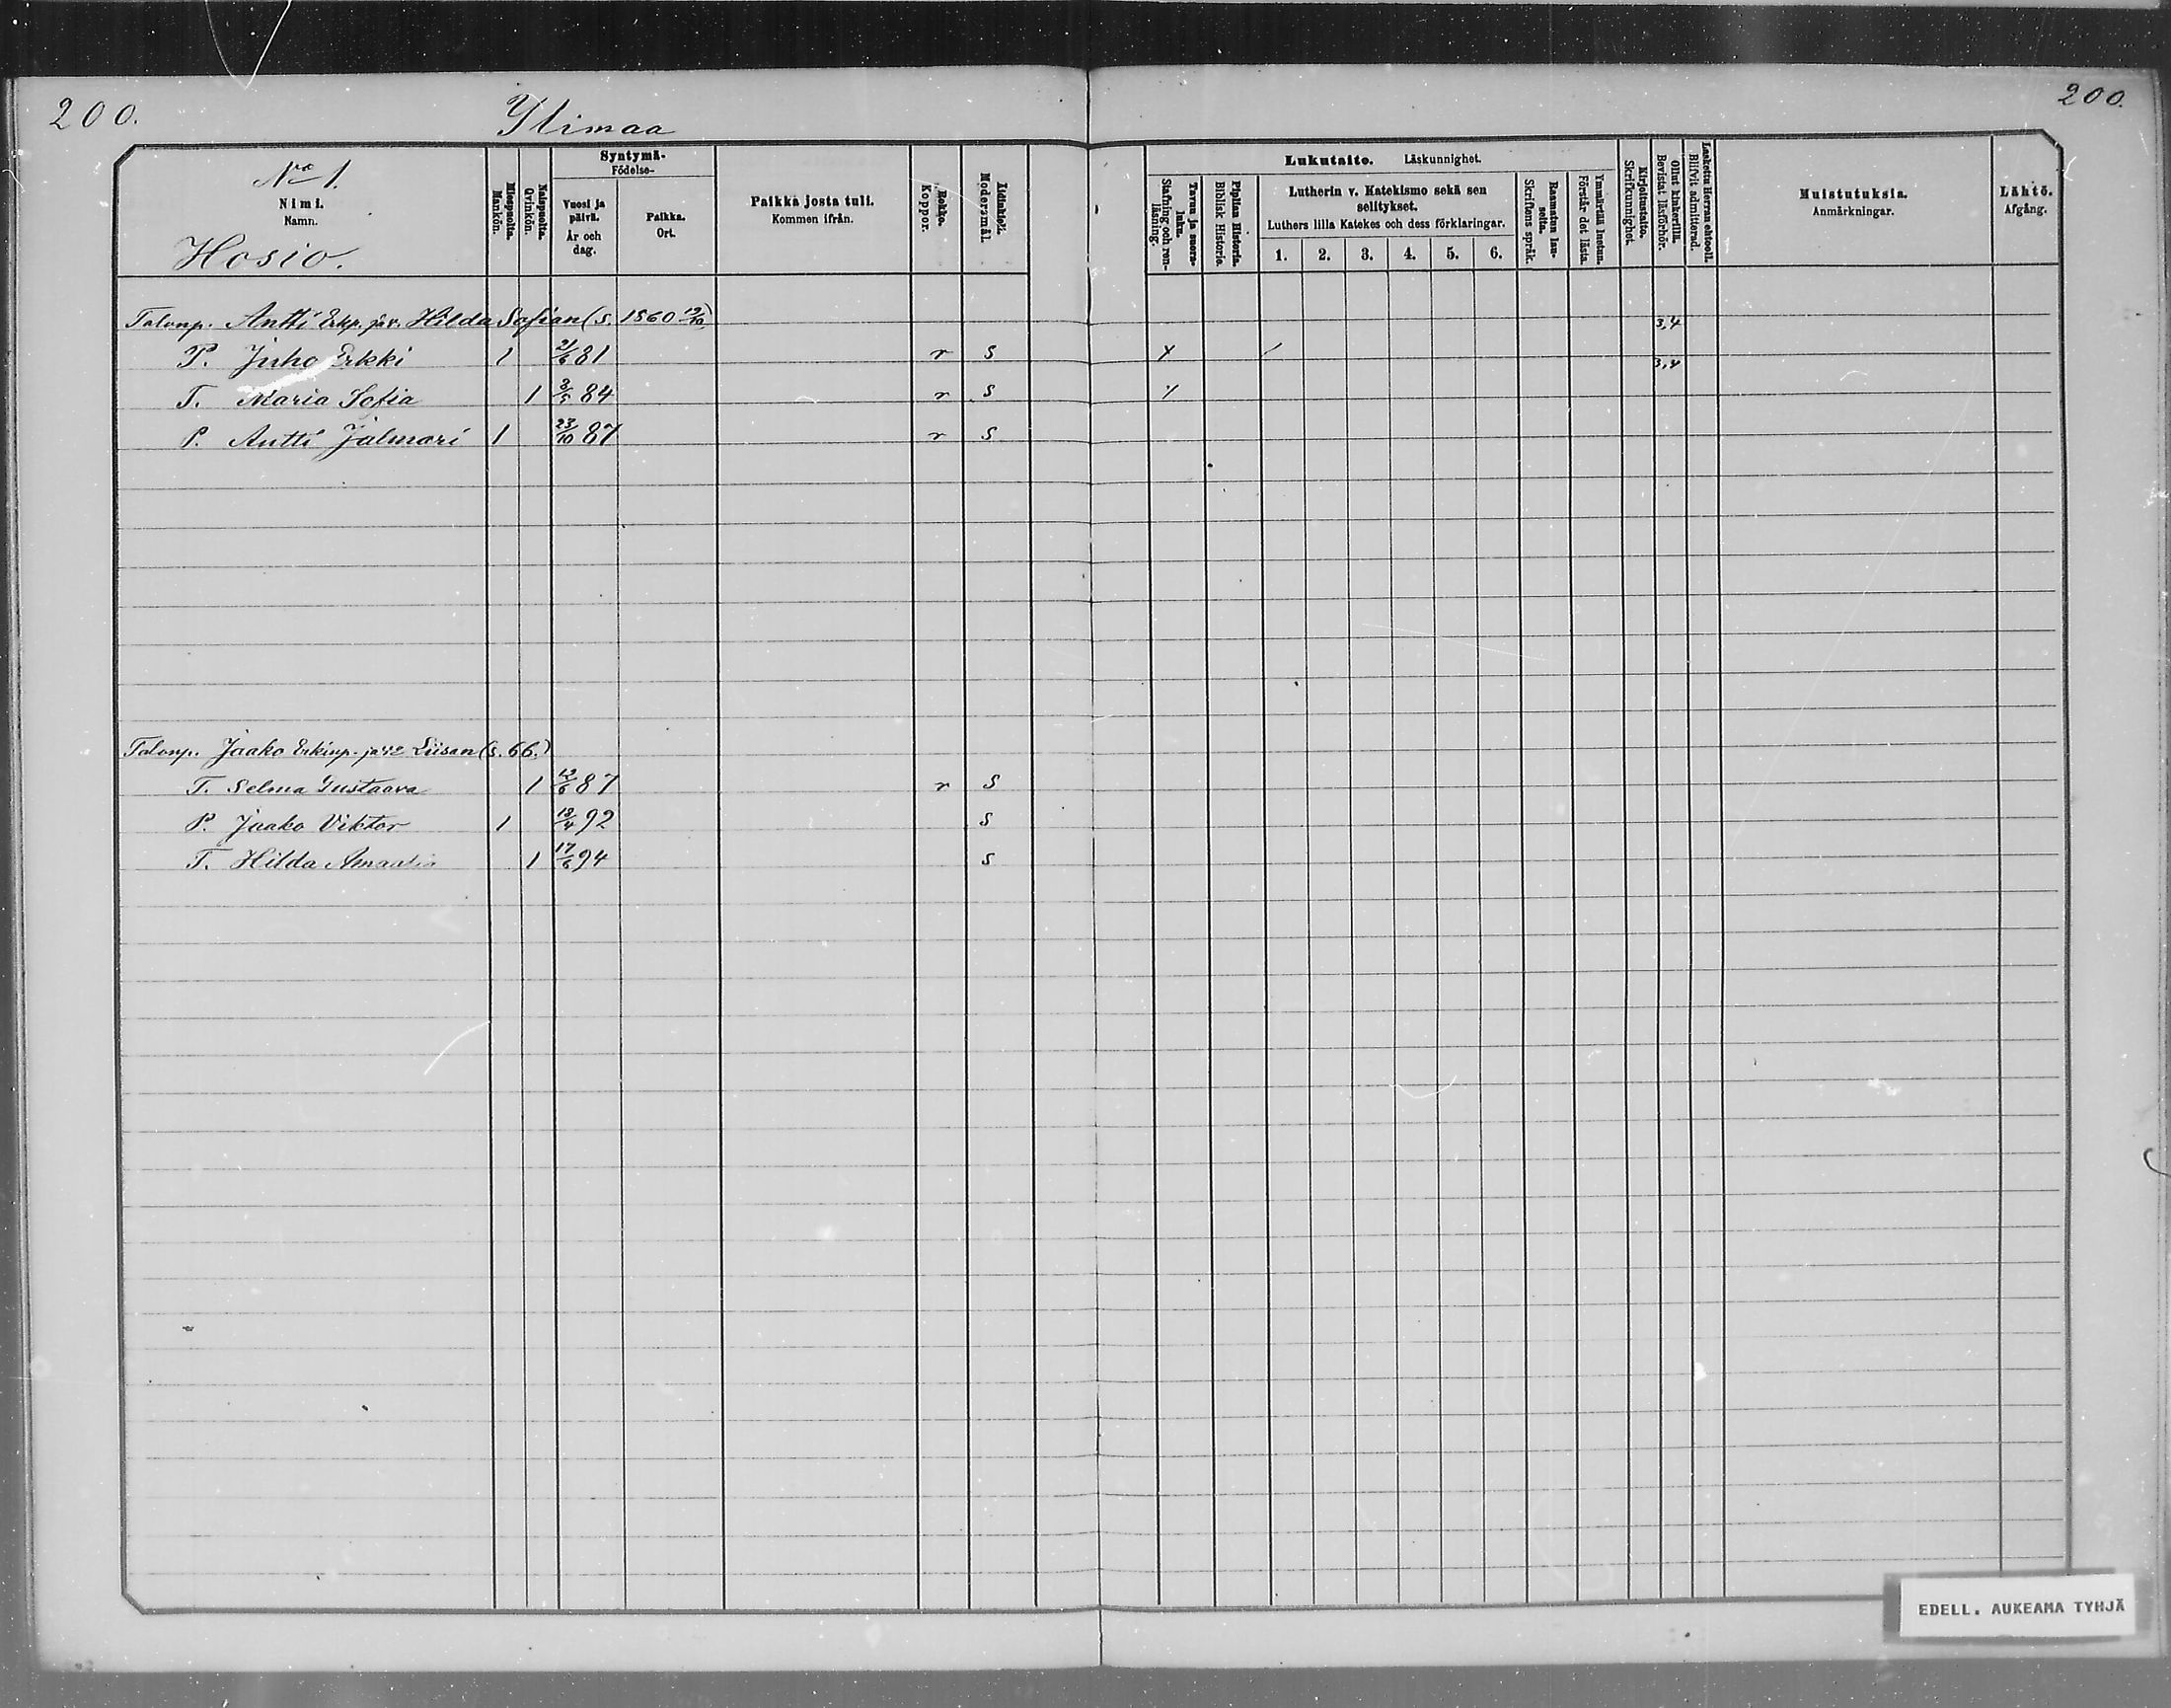 200.
Ylimaa
200.
No 1.
Nimi.
Namn.
Hosio.
Miespuolia.
Mankön.
Naispuolia.
Qvinkön.
Syntymä-
Födelse-
Vuosi ja
päivä.
År och
dag.
Paikka.
Ort.
Paikka josta tuli.
Kommen ifrån.
Rokko.
Koppor.
Äidinkieli.
Modersmål.
Lukutaito. Läskunnighet.
Tavuu ja suora-
luku.
Stafning och ren-
läsning.
Piplian Historia.
Biblisk Historie.
Lutherin v. Katekismo sekä sen
selitykset.
Luthers lilla Katekes och dess förklaringar.
1. 2. 3. 4. 5. 6.
Raamatun lau-
seita.
Skriftens språk.
Ymmärtää luetun.
Förstår det lästa.
Kirjoitustaito.
Skrifkunnighet.
Ollut kinkerillä.
Bevistat läsförhör.
Laskettu Herran ehtooll.
Blifvit admitterad.
Muistutuksia.
Anmärkningar.
Lähtö.
Afgång.
Talonp. Antti Erkp. ja v. Hilda Sofian (s. 1860
3,4
P. Juho Erkki 1 2/6 81 r s x /
3,4
T. Maria Sofia 1 3/5 84 r s
P. Antti Jalmari 1 23/10 87 r s
Talonp. Jaako Erkinp. ja v:e Liisan (s. 66.)
T. Selma Gustaava 1 12/6 87 r s
P. Jaako Viktor 1 18/4 92 s
T. Hilda Amanda 1 17/6 94 s
EDELL. AUKEAMA TYHJÄ